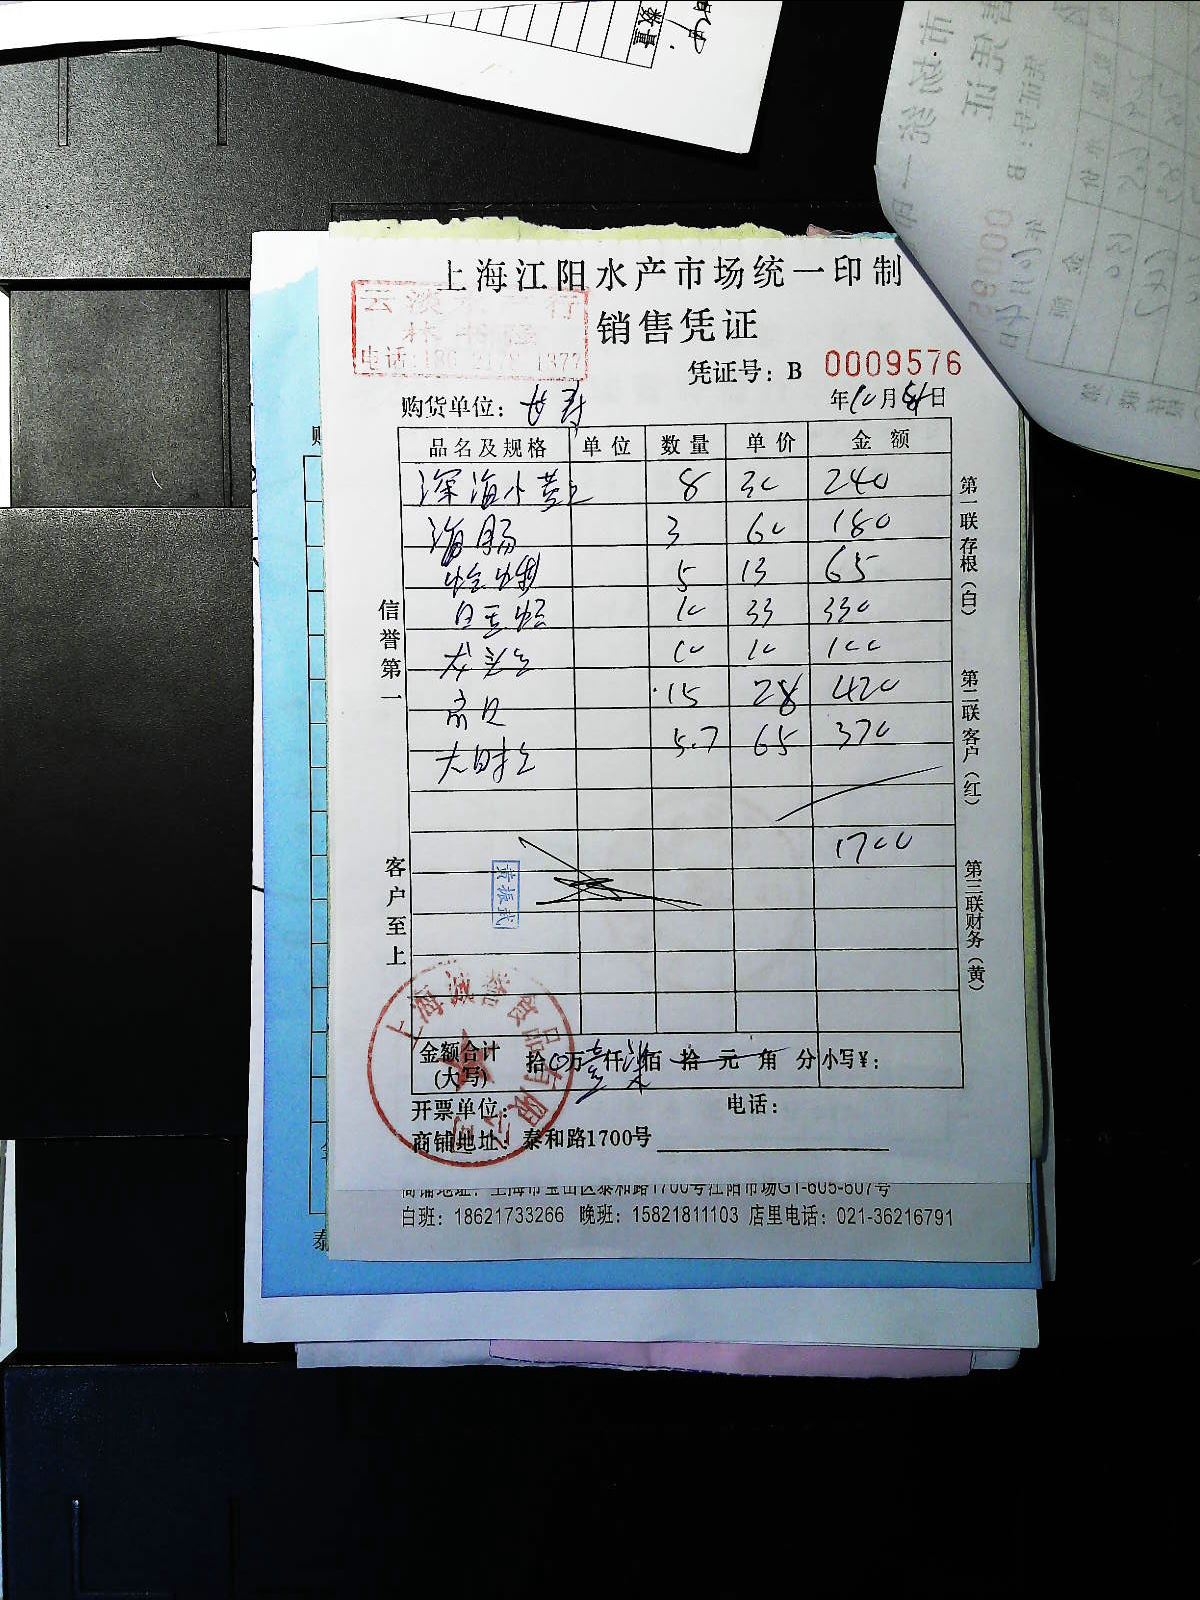 数量
上海江阳水产市场统一印制
销售凭证
凭证号: B 0009576
云淡 行
林
电话:186 2178 1377
购货单位:
年10月 日
品名及规格 单位 数量 单价 金额
深海小黄鱼 8 30 240
海肠 3 60 180
蛤蜊 5 13 65
白玉蛏 10 33 330
龙头鱼 10 10 100
扇贝 15 28 420
大明虾 5.7 65 370
1700
信誉第一
客户至上
第一联存根(白)
第二联客户(红)
第三联财务(黄)
黄振武
上海 食品有限公司
金额合计(大写) 拾0万壹仟柒佰拾元角分 小写¥:
开票单位: 电话:
商铺地址: 泰和路1700号
商铺地址: 上海市宝山区泰和路1700号江阳市场G1-605-607号
白班: 18621733266 晚班: 15821811103 店里电话: 021-36216791